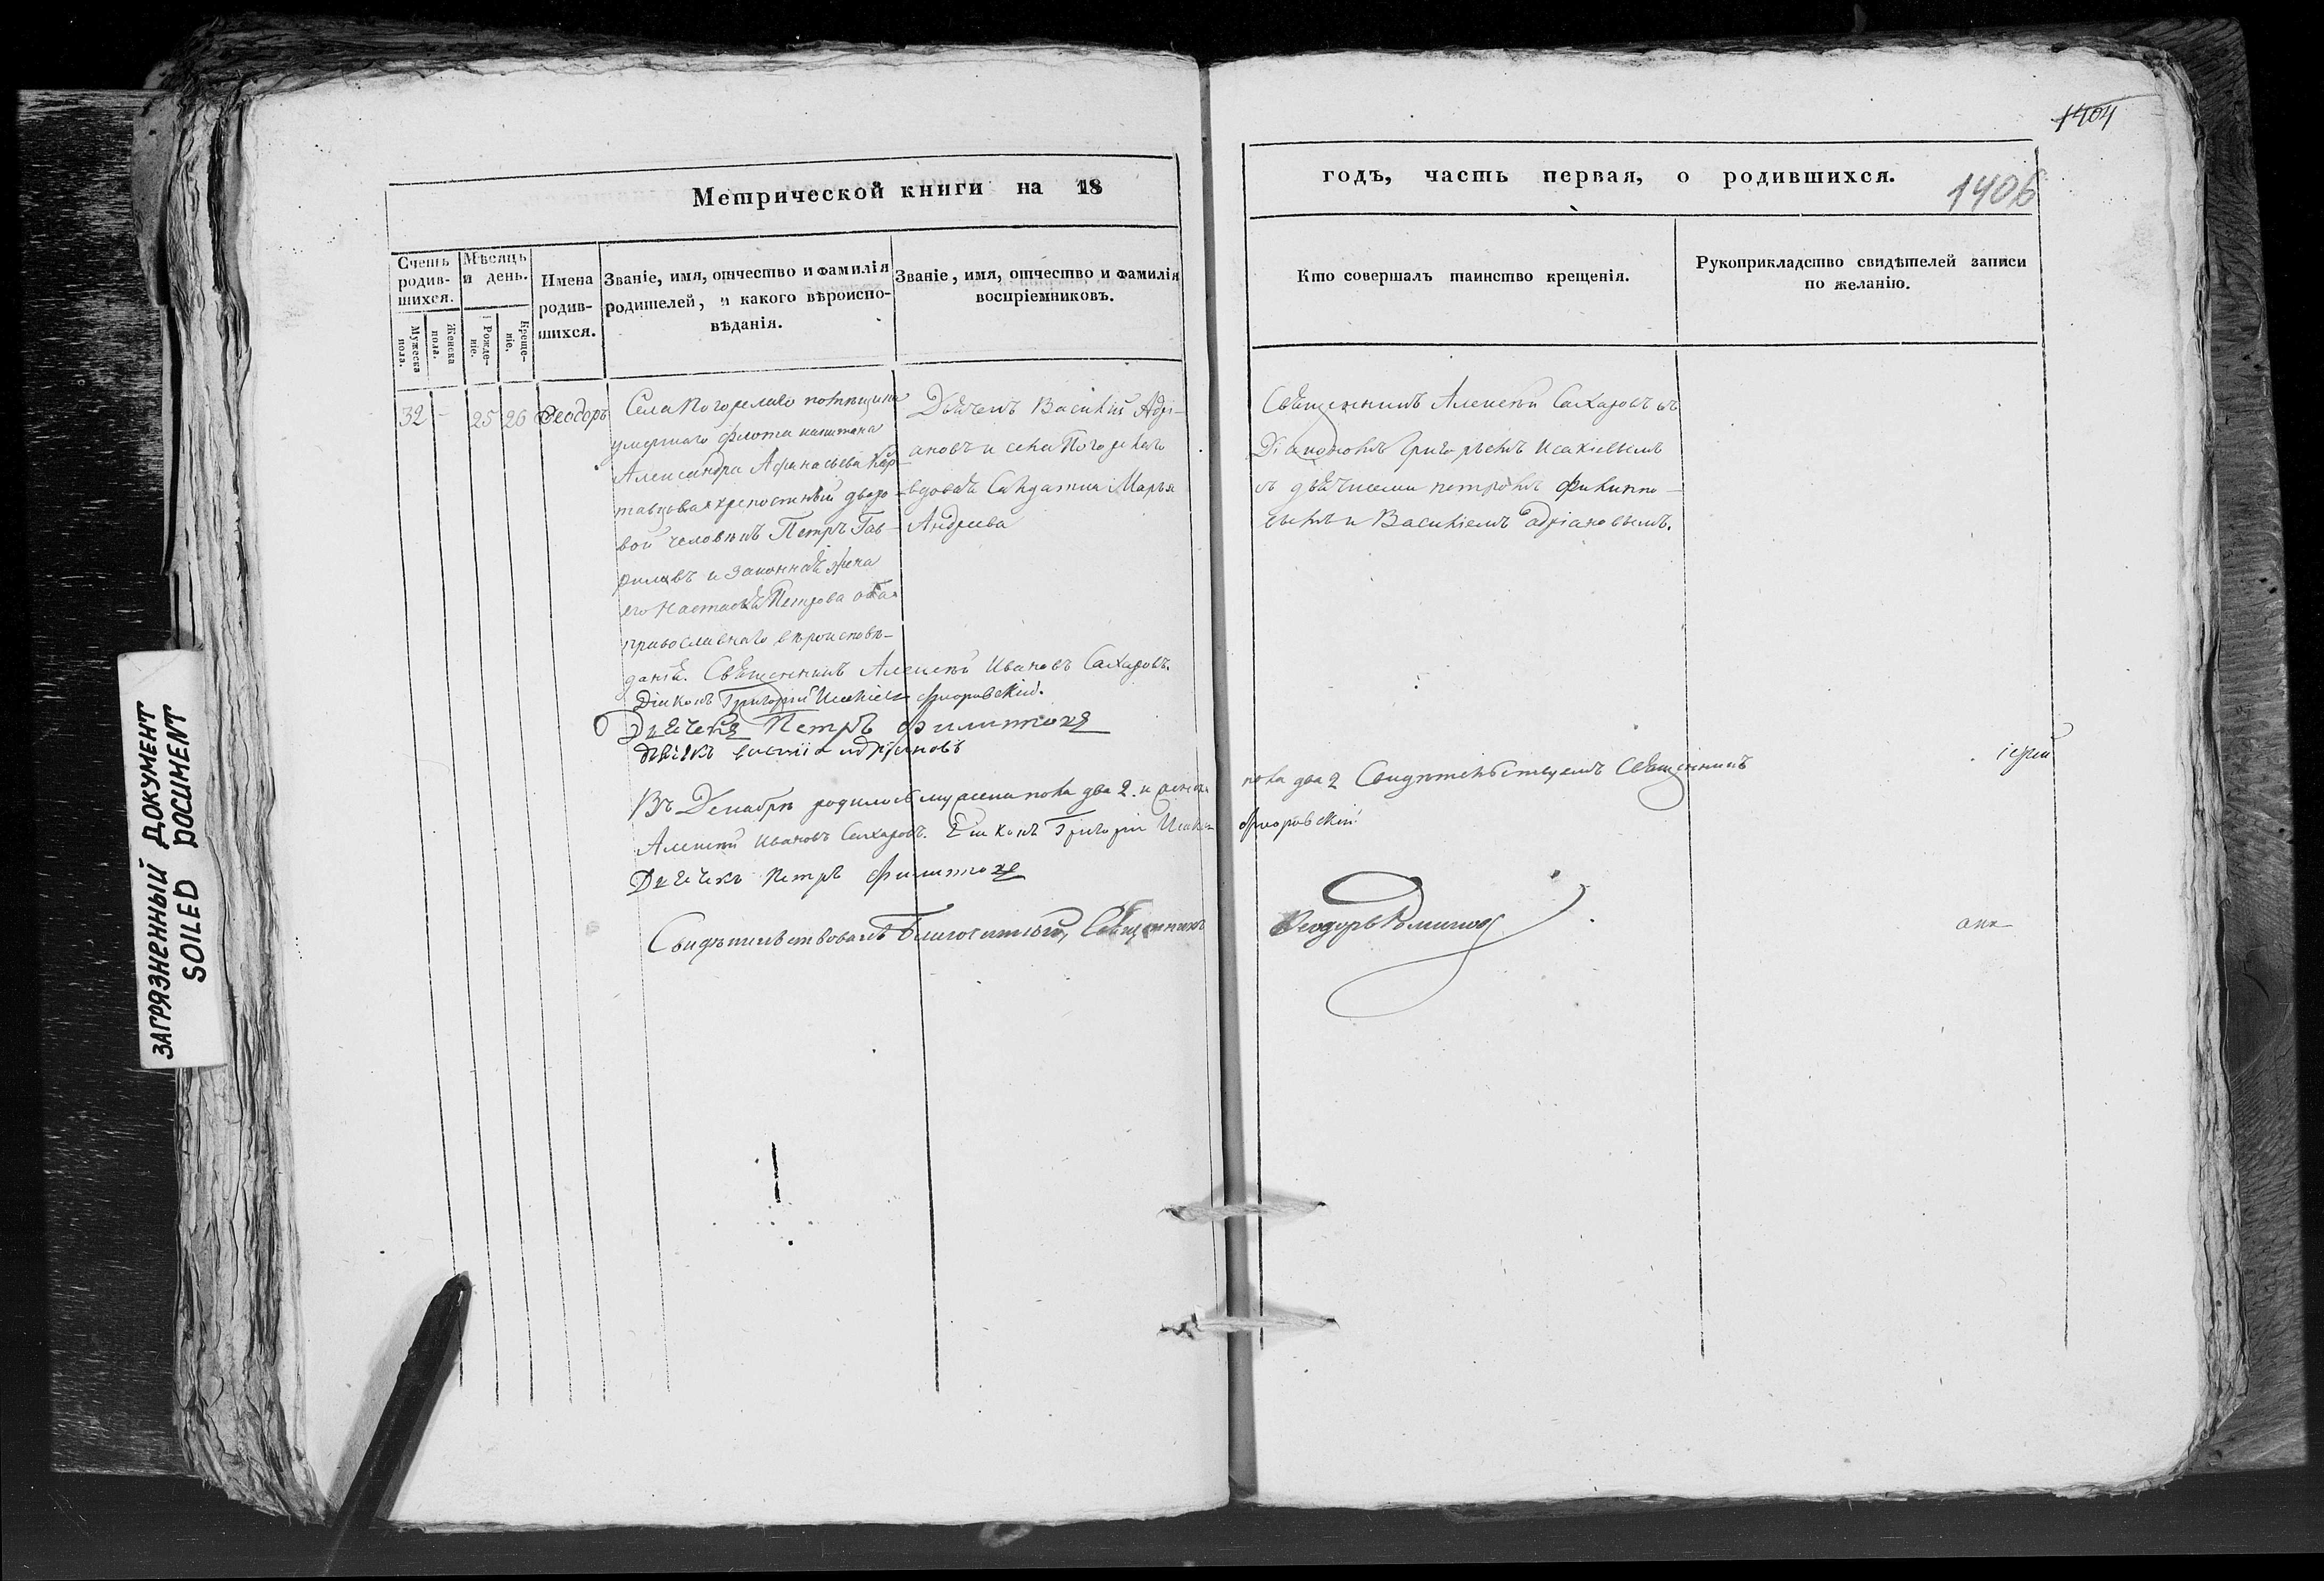 1404
Метрической книги на 18
годъ, часть первая, о родившихся.
1406
Счетъ родив-шихся.
Мужеска пола.
Женска пола.
Мѣсяцъ и день.
Рожде-ніе.
Креще-ніе.
Имена родив-шихся.
Званіе, имя, отчество и фамилія
родителей, и какого вѣроиспо-
вѣданія.
Званіе, имя, отчество и фамилія
воспріемниковъ.
Кто совершалъ таинство крещенія.
Рукоприкладство свидѣтелей записи
по желанію.
32 - 25 26 Ѳеодоръ
Села Погорелаго помѣщика
умершаго флота капитана
Александра Афанасьева Кар-
тавцова крепостный дворо-
вой человѣкъ Петръ Гав-
риловъ и законная жена
его Настасья Петрова оба
православнаго вѣроисповѣ-
данія. Священникъ Алексѣй Ивановъ Сахаровъ.
Діаконъ Григорій
Дьячекъ Петръ Филипповъ
дьячекъ василіи адріановъ
Дьячекъ Василій Адрі-
ановъ и села Погорелаго
вдова Солдатка Марья
Андреева
Священникъ Алексѣй Сахаровъ съ
Діакономъ Григорьемъ Исакіевымъ
съ дьячками петромъ филиппо-
вымъ и Василіемъ адріановымъ.
Въ Декабрѣ родилось мужеска пола два 2. и женска
пола два 2 Свидѣтельствуемъ Священникъ
іерей
Алексѣй Ивановъ Сахаровъ. Діаконъ Григорій
Дьячекъ Петръ Филипповъ
Свидѣтельствовалъ Благочинный, Священникъ
Ѳеодоръ
ЗАГРЯЗНЕННЫЙ ДОКУМЕНТ
SOILED DOCUMENT